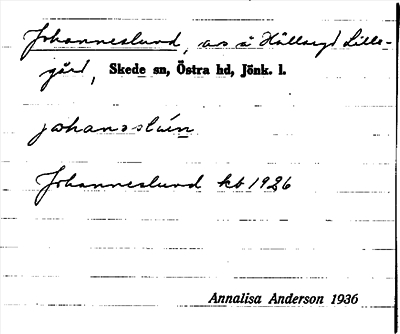 Johanneslund, avs å Hällaryd Lille-
gård, Skede sn, Östra hd, Jönk. l.
johanəslún
Johanneslund kb 1926
Annalisa Anderson 1936